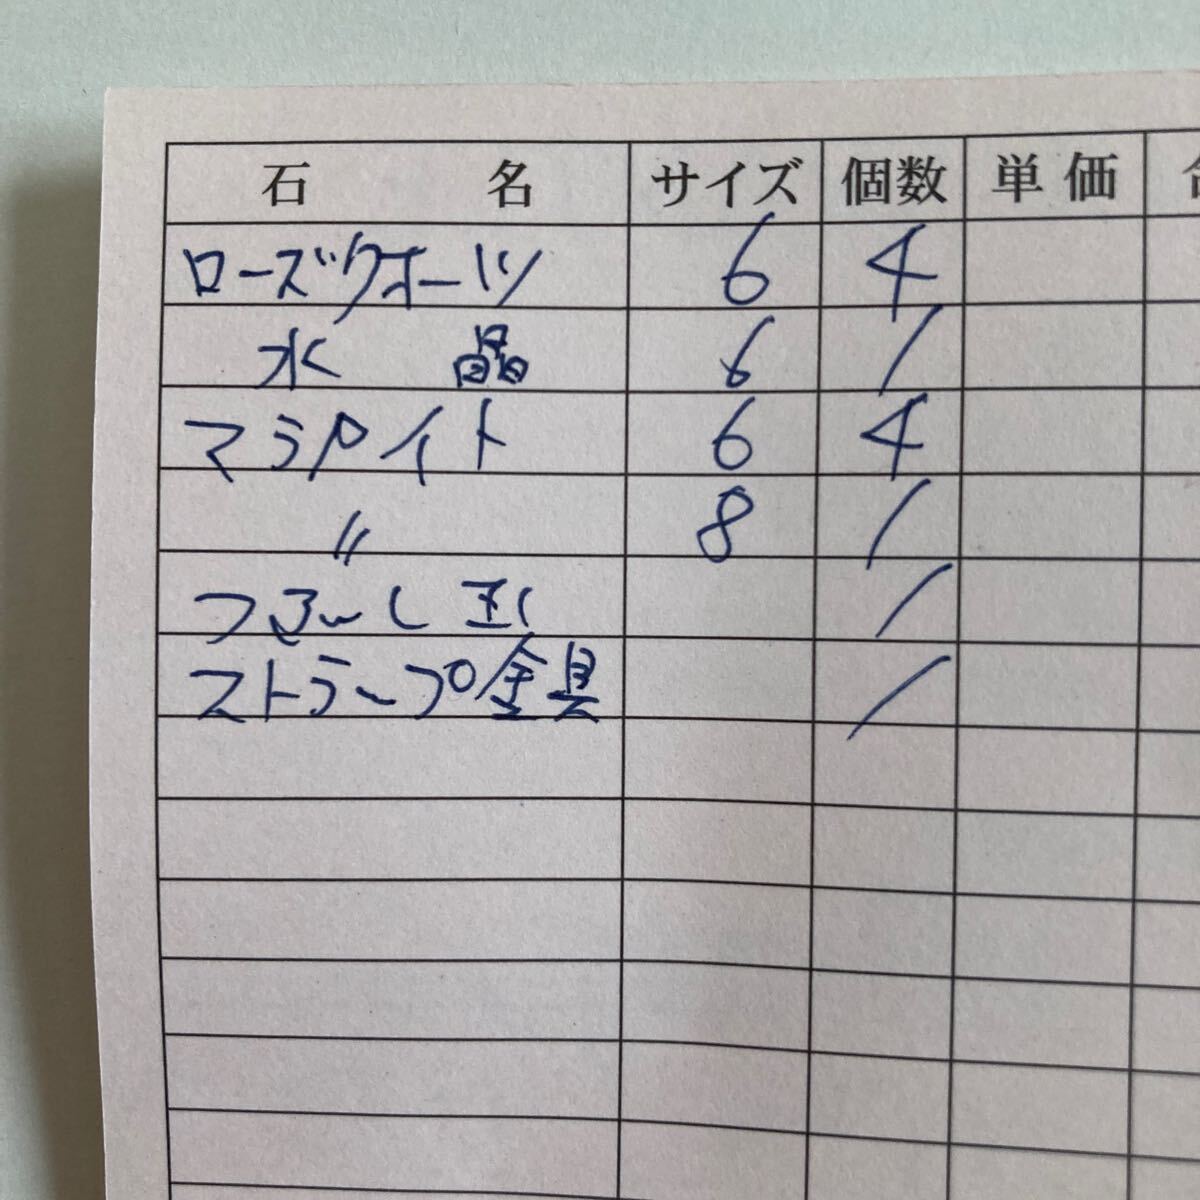 石名 サイズ 個数 単価
ローズクオーツ 6 4
水晶 6 1
マラカイト 6 4
〃 8 1
つぶし玉 1
ストラップ金具 1